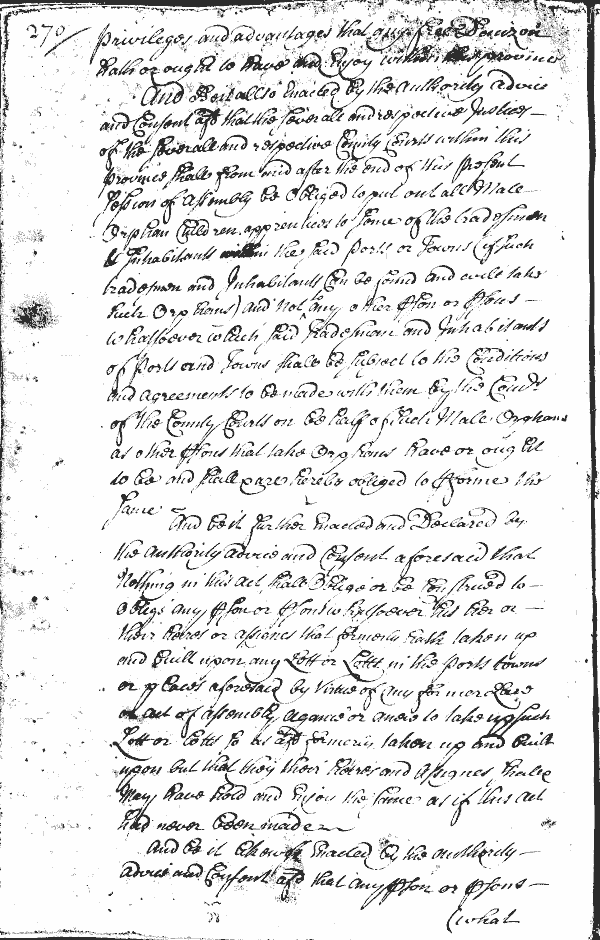 270/
Priviledges and advantages that any free Denizon
hath or ought to have and Enjoy within this province
And Be it allso Enacted by the Authority advice
and Consent afd that the severall and respective Justices
of the severall and respective County Courts within this
province shall from and after the end of this present
Session of Assembly be Obliged to put out all Male
Orphan Children apprentices to some of the tradesmen
& Inhabitants within the said Ports or Towns (if such
tradesmen and Inhabitants Can be found and will take
such Orphans) and not any other ꝑson or ꝑsons
whatsoever which said tradesman and Inhabitants
of Ports and Towns shall be subject to the Conditions
and agreements to be made with them by the Courts
of the County Courts on behalf of such Male Orphans
as other ꝑsons that take Orphans have or ought
to be and shall are hereby obliged to ꝑforme the
same
And be it further Enacted and Declared by
the authority advice and Consent aforesaid that
Nothing in this Act shall Oblige or be Construed to
Oblige any ꝑson or ꝑsons whatsoever his her or
their heires or assignes that formerly hath taken up
and built upon any Lott or Lotts in the Ports towns
or places aforesaid by Virtue of any former Law
or act of assembly againe or anew to take up such
Lott or Lotts so as afd formerly taken up and built
upon but that they their heires and Assignes shall
May have hold and Enjoy the same as if this Act
had never been made
And be it likewise Enacted by the authority
advice and Consent afd that any ꝑson or ꝑsons
(what